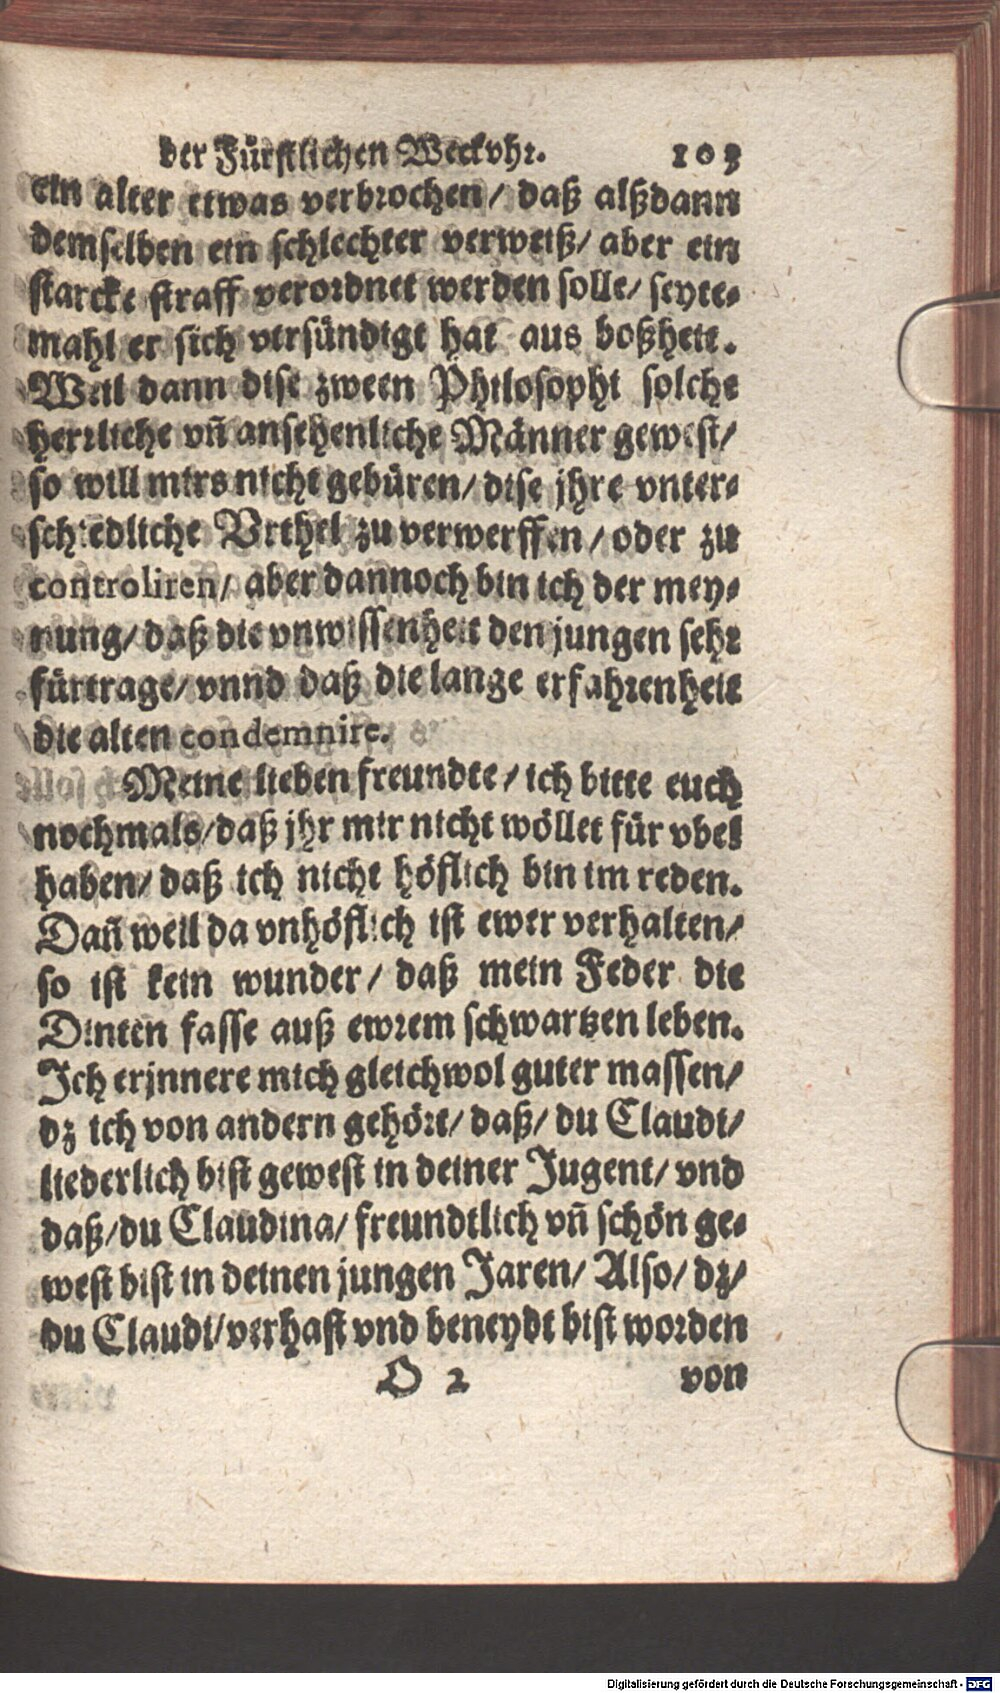 der Fürstlichen Weckvhr. 103
ein alter etwas verbrochen/ daß alßdann
demselben ein schlechter verweiß/ aber ein
starcke straff verordnet werden solle/ seyte-
mahl er sich versündigt hat aus boßheit.
Weil dann dise zween Philosophi solche
herrliche vñ ansehenliche Männer gewest/
so will mirs nicht gebüren/ dise jhre vnter-
schiedliche Vrthel zu verwerffen/ oder zu
controliren/ aber dannoch bin ich der mey-
nung/ daß die vnwissenheit den jungen sehr
fürtrage/ vnnd daß die lange erfahrenheit
die alten condemnire.
Meine lieben freundte/ ich bitte euch
nochmals/ daß jhr mir nicht wöllet für vbel
haben/ daß ich nicht höflich bin im reden.
Dañ weil da vnhöflich ist ewer verhalten/
so ist kein wunder/ daß mein Feder die
Dinten fasse auß ewrem schwartzen leben.
Ich erjnnere mich gleichwol guter massen/
dz ich von andern gehört/ daß/ du Claudi/
liederlich bist gewest in deiner Jugent/ vnd
daß/ du Claudina/ freundtlich vñ schön ge-
west bist in deinen jungen Jaren/ Also/ dz/
du Claudi/ verhast vnd beneydt bist worden
O 2 von
Digitalisierung gefördert durch die Deutsche Forschungsgemeinschaft - DFG